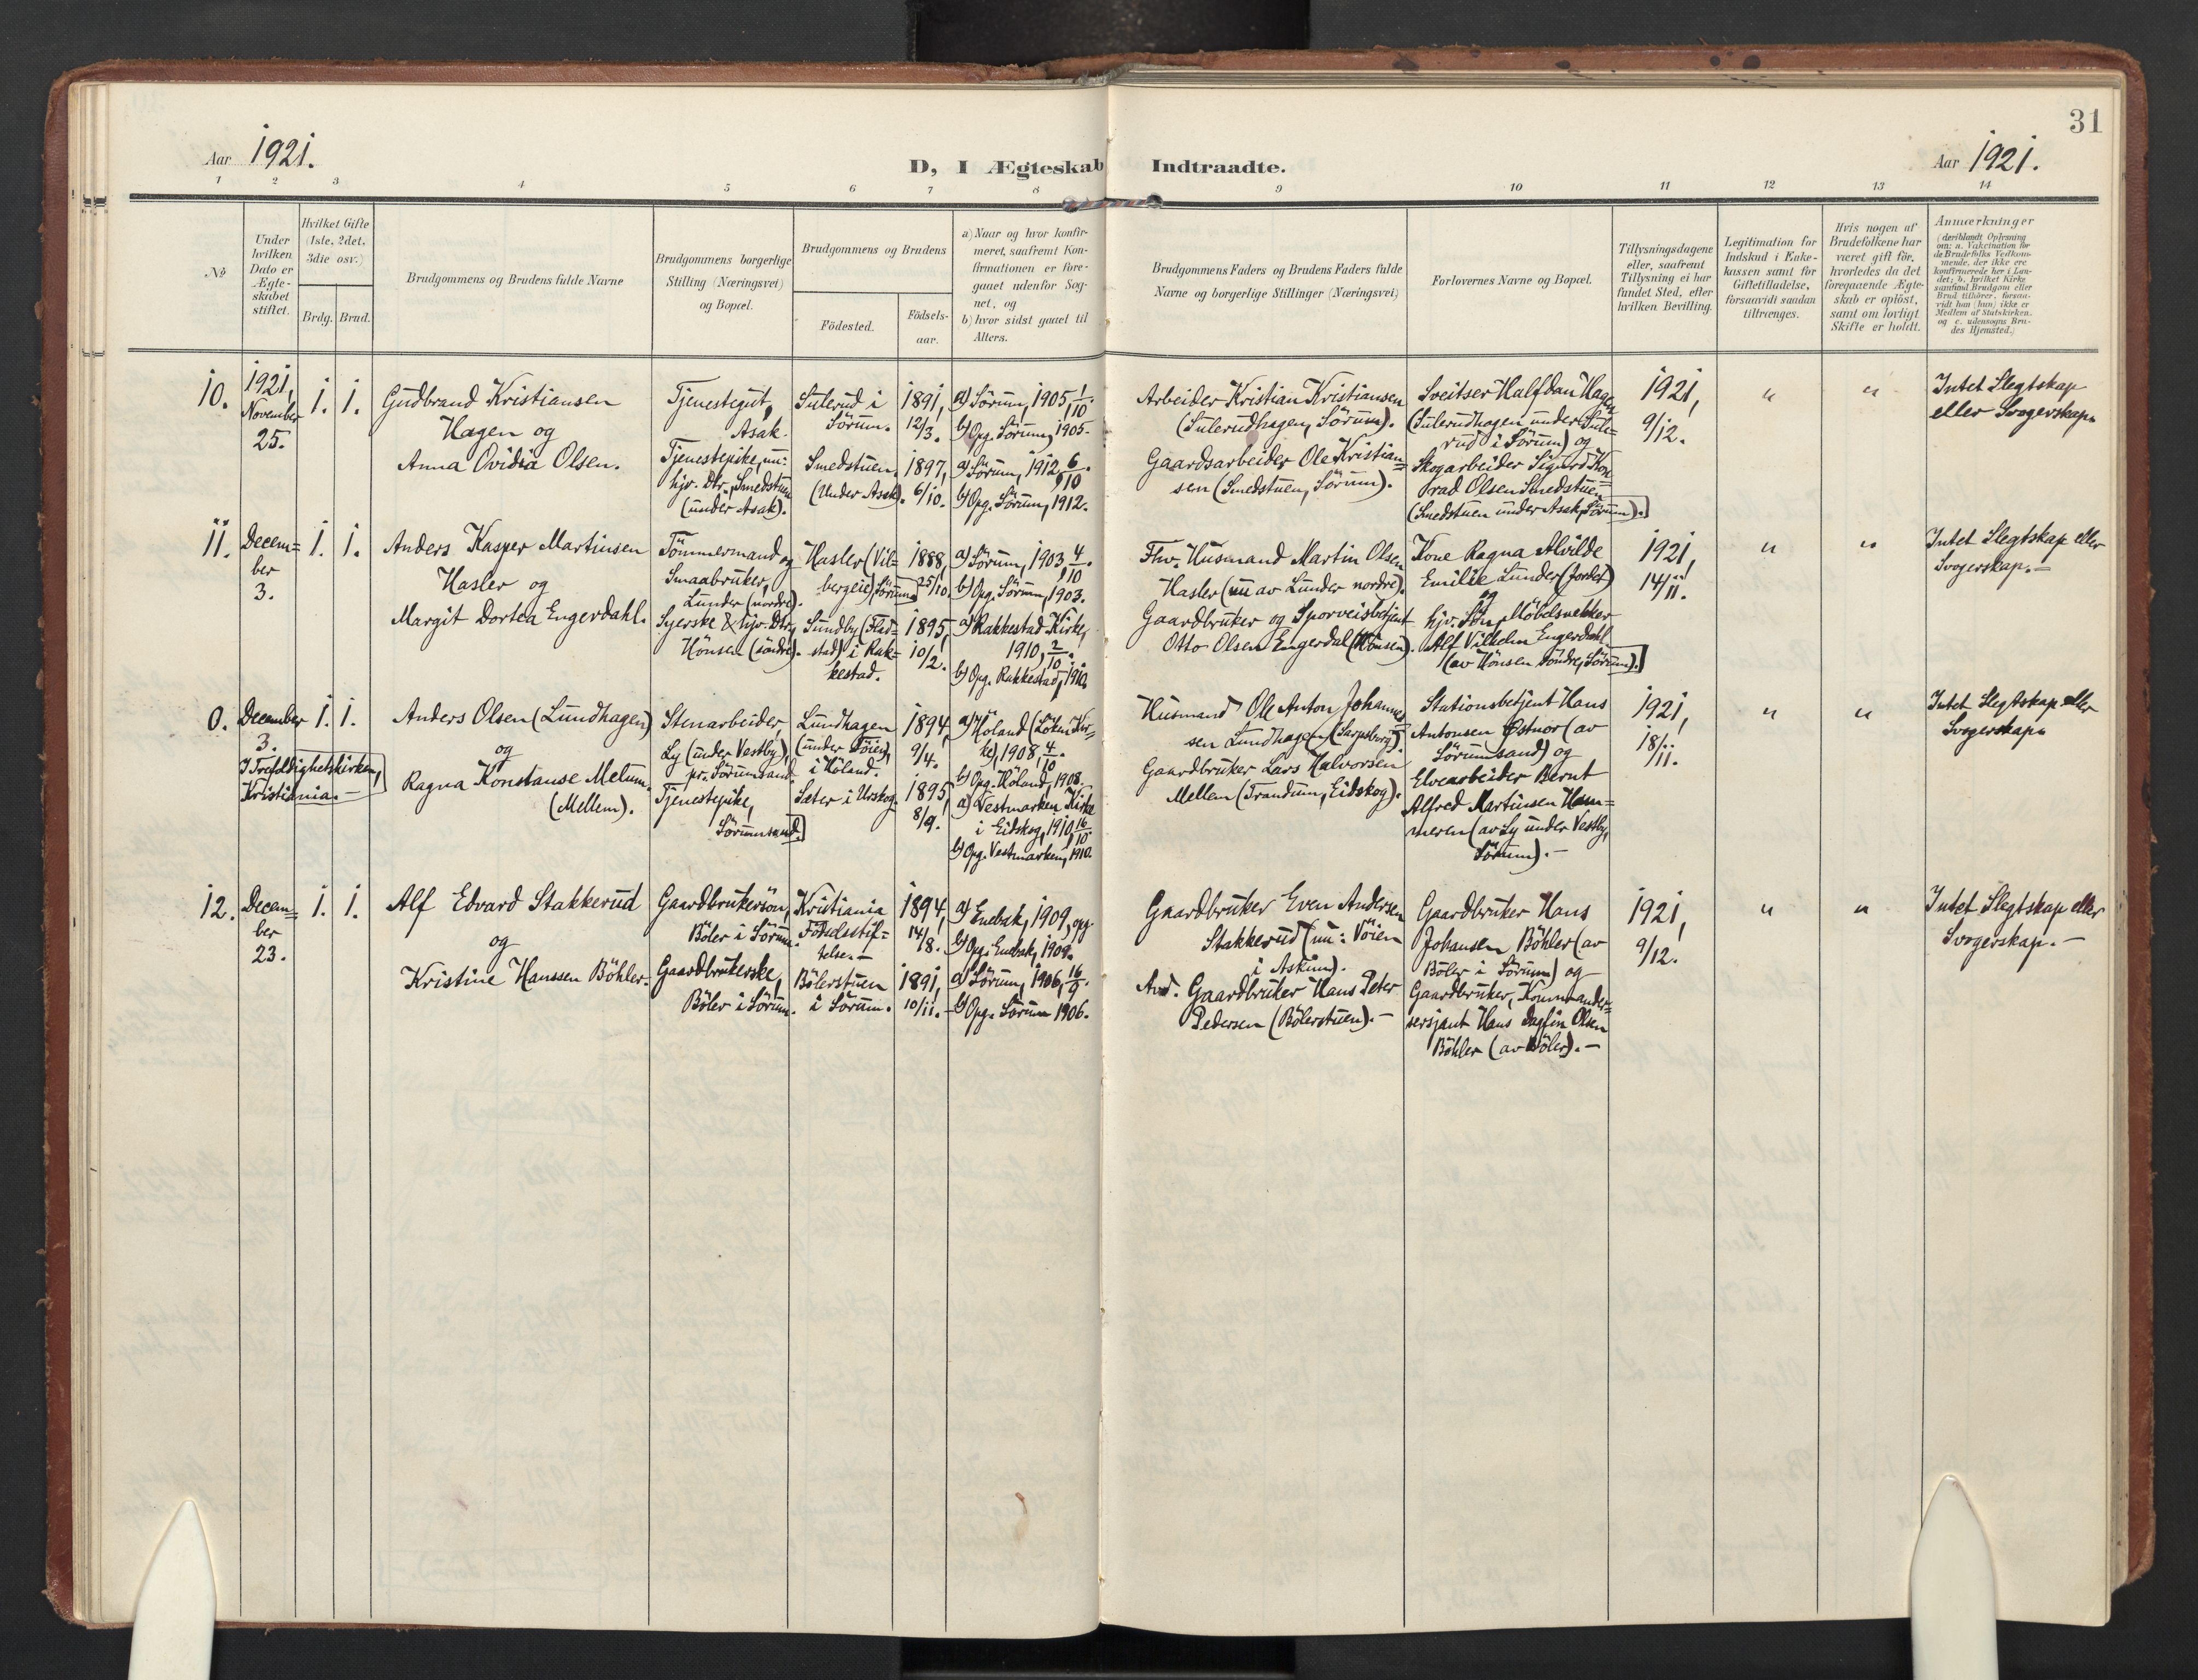 31
Aar 1921.
D, I Ægteskab Indtraadte.
Aar 1921.
1 2 3 4 5 6 7 8 9 10 11 12 13 14
No
Under hvilken Dato er Ægte-skabet stiftet.
Hvilket Gifte (1ste, 2det, 3die osv.)
Brdg. Brud.
Brudgommens og Brudens fulde Navne
Brudgommens borgerlige Stilling (Næringsvei) og Bopæl.
Brudgommens og Brudens
Födested.
Födsels-aar.
a) Naar og hvor konfir-meret, saafremt Kon-firmationen er fore-gaaet udenfor Sog-net, og
b) hvor sidst gaaet til Alters.
Brudgommens Faders og Brudens Faders fulde Navne og borgerlige Stillinger (Næringsvei)
Forlovernes Navne og Bopæl.
Tillysningsdagene eller, saafremt Tillysning ei har fundet Sted, efter hvilken Bevilling.
Legitimation for Indskud i Enke-kassen samt for Giftetilladelse, forsaavidt saadan tiltrænges.
Hvis nogen af Brudefolkene har været gift för, hvorledes da det foregaaende Ægte-skab er oplöst, samt om lovligt Skifte er holdt.
Anmærkninger
(deriblandt Oplysning om: a. Vakcination for de Brudefolks Vedkom-mende, der ikke ere konfirmerede her i Lan-det; b. hvilket Kirke samfund Brudgom eller Brud tilhörer, forsaa-vidt han (hun) ikke er Medlem af Statskirken. og c. udensogns Bru-des Hjemsted.)
10.
1921,
November
25.
1. 1.
Gudbrand Kristiansen
Hagen og
Anna Ovidia Olsen.
Tjenestegut,
Asak.
Tjenestepike, nu:
hjv. Dtr., Smedstuen
(under Asak).
Sulerud i
Sörum.
Smedstuen
(Under Asak).
1891,
12/3.
1897,
6/10.
a) Sörum, 1905, 1/10.
b) Opg. Sörum, 1905.
a) Sörum, 1912, 6/10.
b) Opg. Sörum, 1912.
Arbeider Kristian Kristiansen
(Sulerudhagen, Sörum).
Gaardsarbeider Ole Kristian=
sen (Smedstuen, Sörum).
Sveitser Halfdan Hagen
(Sulerudhagen under Sule=
rud i Sörum) og
Skogarbeider Sigurd Kon=
rad Olsen Smedstuen
(Smedstuen under Asak, Sörum).
1921,
9/12.
" "
Intet Slegtskap
eller Svogerskap.
11.
Decem=
ber
3.
1. 1.
Anders Kasper Martinsen
Hasler og
Margit Dortea Engerdahl.
Tömmermand og
Smaabruker,
Lunder (nordre).
Syerske & hjv. Dtr.,
Hönsen (söndre).
Hasler (Vil=
bergeie) Sörum.
Sundby (Flad=
stad) i Rak=
kestad.
1888,
25/10.
1895,
10/2.
a) Sörum, 1903, 4/10.
b) Opg. Sörum, 1903.
a) Rakkestad Kirke,
1910, 2/10.
b) Opg. Rakkestad, 1910.
Fhv. Husmand Martin Olsen
Hasler (nu av Lunder nordre).
Gaardbruker og Sporveisbetjent
Otto Olsen Engerdal (Hönsen).
Kone Ragna Alvilde
Emilie Lunder (Jordet)
og
hjv. Sön, Möbelsnekker
Alf Vilhelm Engerdahl
(av Hönsen söndre, Sörum).
1921,
14/11.
" "
Intet Slegtskap eller
Svogerskap.—
0.
December
3.
I Trefoldighetskirken,
Kristiania.—
1. 1.
Anders Olsen (Lundhagen)
og
Ragna Konstanse Melum
(Mellem).
Stenarbeider,
Ly (under Vestby),
pr. Sörumsand.
Tjenestepike,
Sörumsand.
Lundhagen
(under Töien),
i Höland.
Sæter i Urskog.
1894,
9/4.
1895,
8/9.
a) Höland (Löken Kir=
ke), 1908, 4/10.
b) Opg. Höland, 1908.
a) Vestmarken Kirke
i Eidskog, 1910, 16/10.
b) Opg. Vestmarken, 1910.
Husmand Ole Anton Johannes=
sen Lundhagen (Sarpsborg).
Gaardbruker Lars Halvorsen
Mellem (Trandum, Eidskog).
Stationsbetjent Hans
Antonsen Østnor (av
Sörumsand) og
Elvearbeider Bernt
Alfred Martinsen Ham=
meren (av Ly under Vestby,
Sörum).—
1921,
18/11.
" "
Intet Slegtskap eller
Svogerskap.
12.
Decem=
ber
23.
1. 1.
Alf Edvard Stakkerud
og
Kristine Hanssen Böhler.
Gaardbrukersön,
Böler i Sörum.
Gaardbrukerske,
Böler i Sörum.
Kristiania
Födselsstif=
telse.—
Bölerstuen
i Sörum.
1894,
14/8.
1891,
10/11.
a) Enebak, 1909, og
b) Opg. Enebak, 1909.
a) Sörum, 1906, 16/9.
b) Opg. Sörum 1906.
Gaardbruker Even Andersen
Stakkerud (nu: Vöien
i Askim).
Avd. Gaardbruker Hans Peter
Pedersen (Bölerstuen).—
Gaardbruker Hans
Johansen Böhler (av
Böler i Sörum) og
Gaardbruker, Kommander=
sersjant Hans Dagfin Olsen
Böhler (av Böler).—
1921,
9/12.
" "
Intet Slegtskap eller
Svogerskap.—